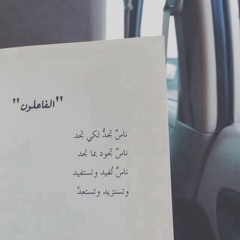 "الفاعلون"
ناسٌ تَجدُّ لكي تجد
ناسٌ تجود بما تجد
ناسٌ تُفيد وتستفيد
وتستزيد وتستعدّ